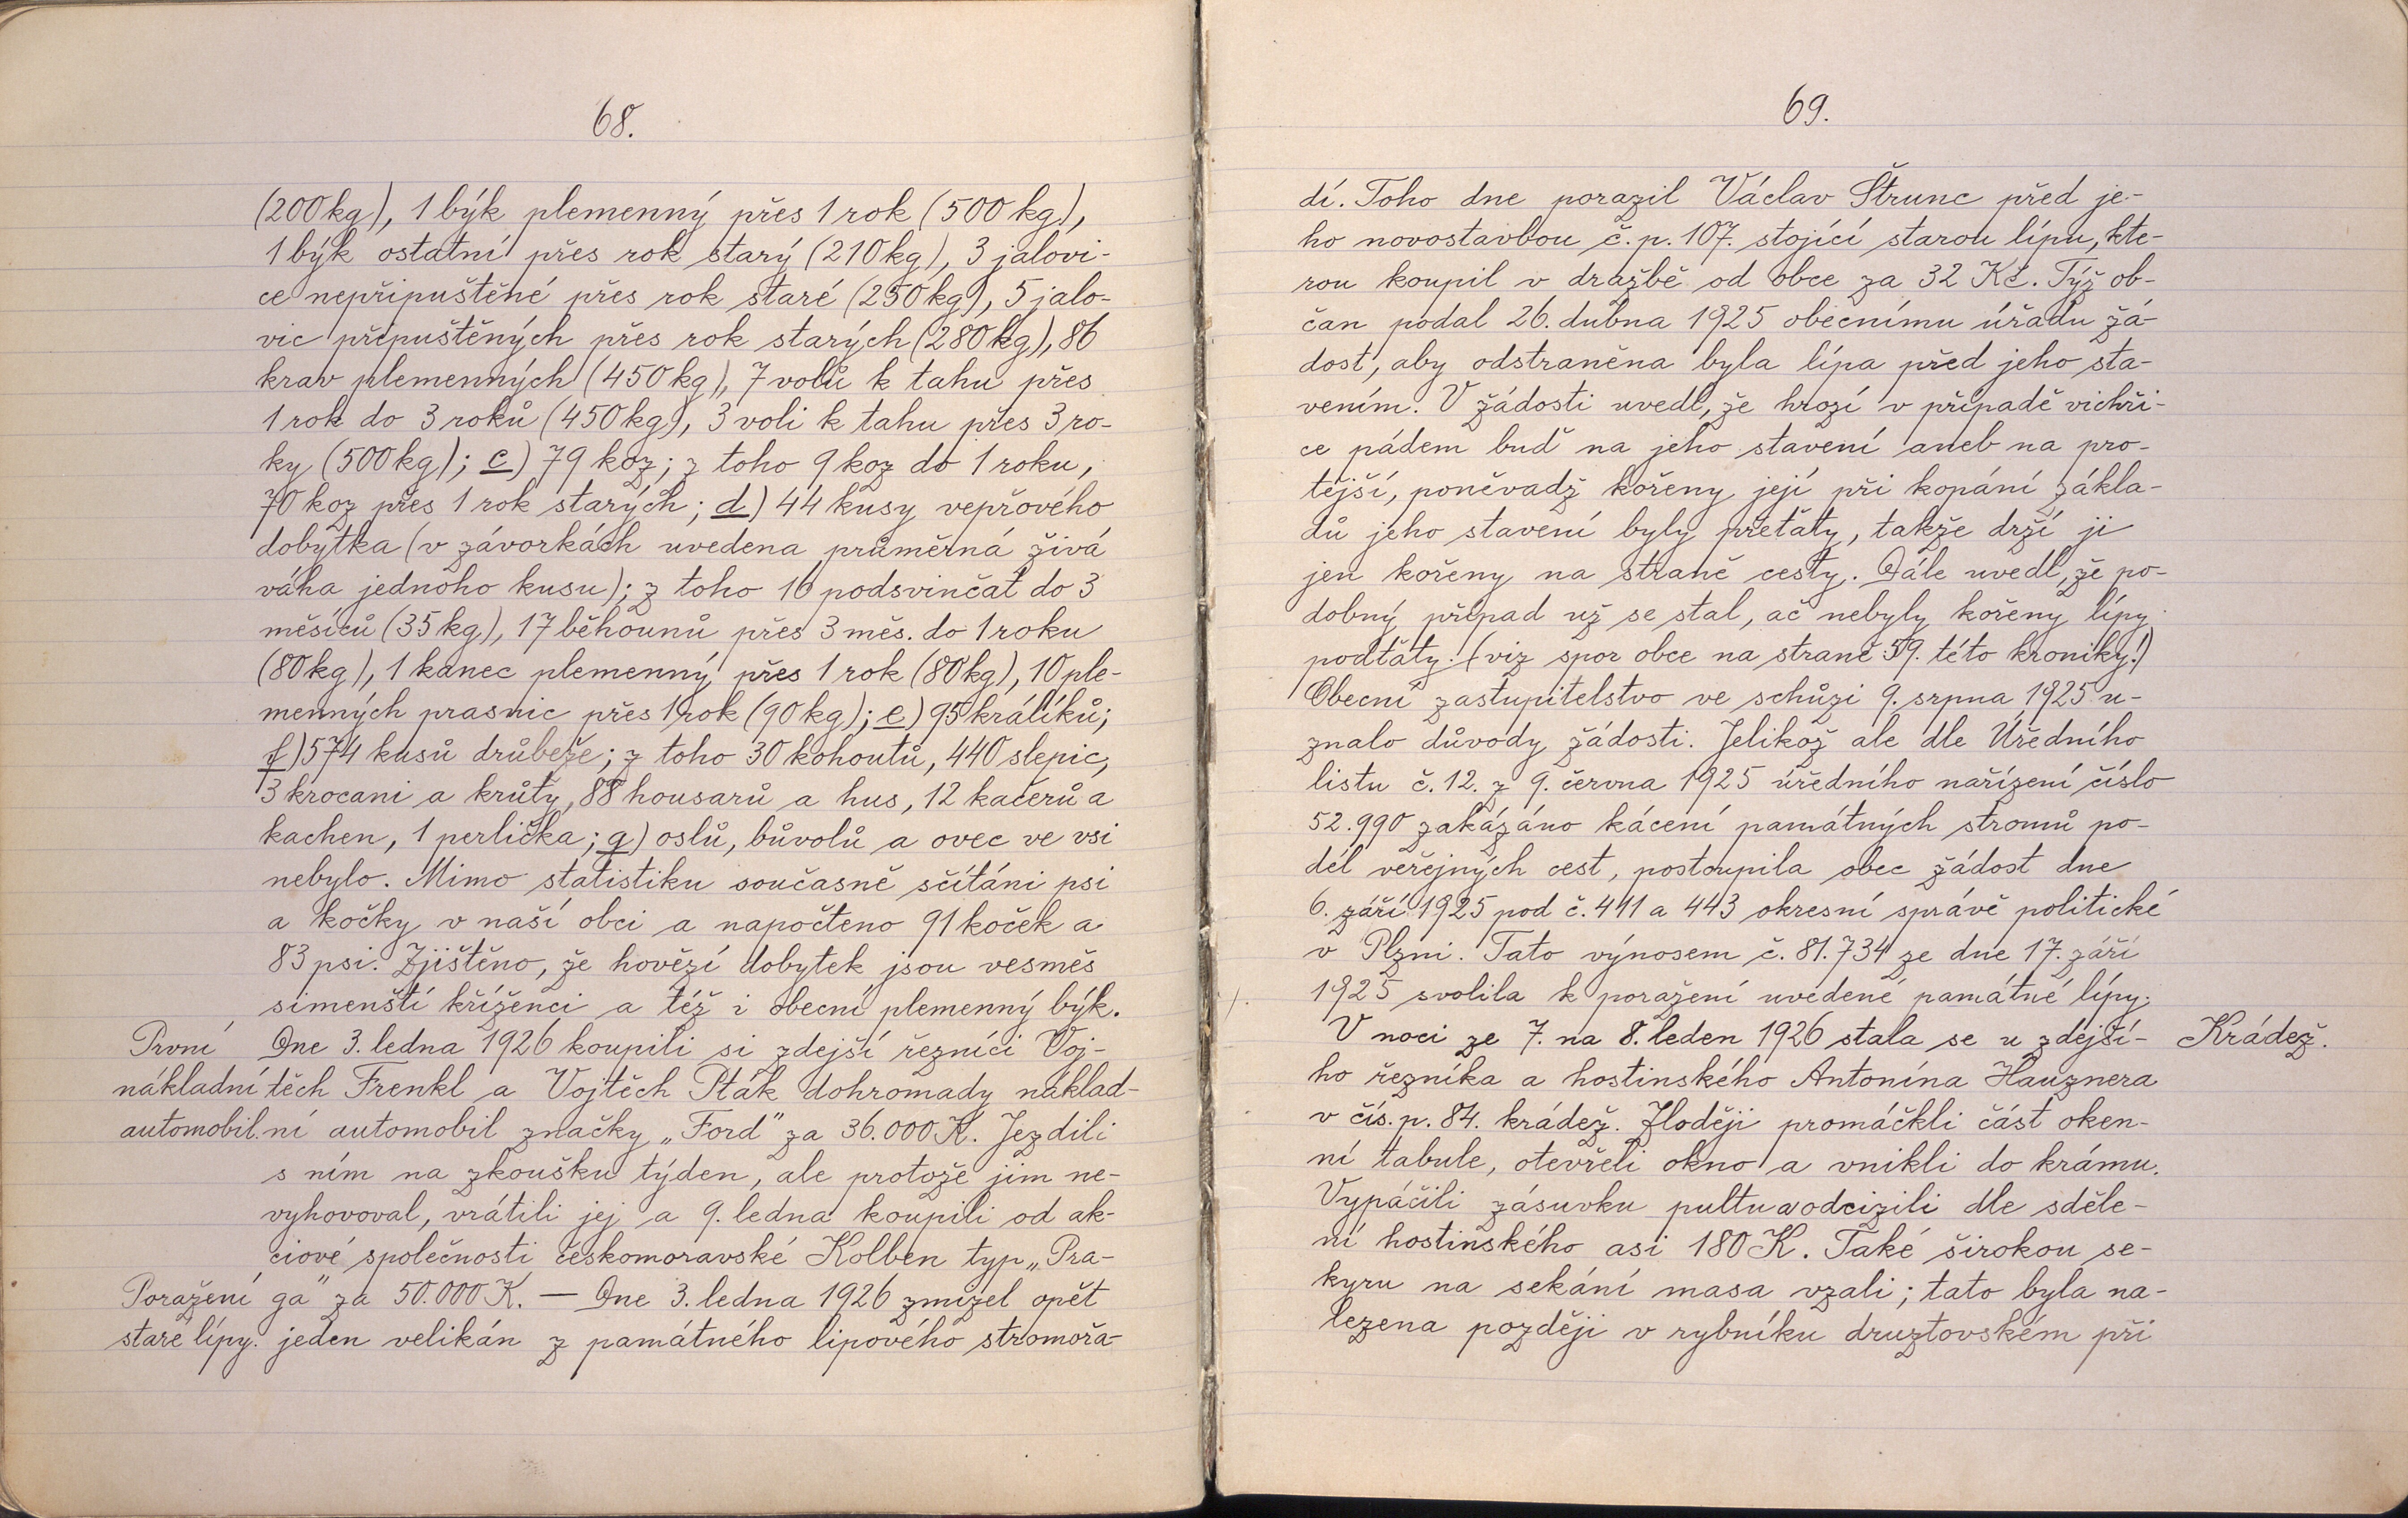 68.
(200 kg), 1 býk plemenný přes 1 rok (500 kg),
1 býk ostatní přes rok starý (210 kg), 3 jalovi-
ce nepřipuštěné přes rok staré (250 kg), 5 jalo-
vic připuštěných přes rok starých (280 kg), 86
krav plemenných (450 kg), 7 volů k tahu přes
1 rok do 3 roků (450 kg), 3 voli k tahu přes 3 ro-
ky (500 kg); c) 79 koz; z toho 9 koz do 1 roku,
70 koz přes 1 rok starých; d) 44 kusy vepřového
dobytka (v závorkách uvedena průměrná živá
váha jednoho kusu); z toho 16 podsvinčat do 3
měsíců (35 kg), 17 běhounů přes 3 měs. do 1 roku
(80 kg), 1 kanec plemenný přes 1 rok (80 kg), 10 ple-
menných prasnic přes 1 rok (90 kg); e) 95 králíků;
f) 574 kusů drůbeže; z toho 30 kohoutů, 440 slepic,
3 krocani a krůty, 88 housarů a hus, 12 kačerů a
kachen, 1 perlička; g) oslů, bůvolů a ovec ve vsi
nebylo. Mimo statistiku současně sčítáni psi
a kočky v naší obci a napočteno 91 koček a
83 psi. Zjištěno, že hovězí dobytek jsou vesměs
simenští kříženci a též i obecní plemenný býk.
První Dne 3. ledna 1926 koupili si zdejší řezníci Voj-
nákladní těch Frenkl a Vojtěch Pták dohromady náklad-
automobil. ní automobil značky „Ford" za 36.000 K. Jezdili
s ním na zkoušku týden, ale protože jim ne-
vyhovoval, vrátili jej a 9. ledna koupili od ak-
ciové společnosti českomoravské Kolben typ „Pra-
Poražení ga" za 50.000 K. — Dne 3. ledna 1926 zmizel opět
staré lípy. jeden velikán z památného lipového stromořa-
69.
dí. Toho dne porazil Václav Štrunc před je-
ho novostavbou č. p. 107. stojící starou lípu, kte-
rou koupil v dražbě od obce za 32 Kč. Týž ob-
čan podal 26. dubna 1925 obecnímu úřadu žá-
dost, aby odstraněna byla lípa před jeho sta-
vením. V žádosti uvedl, že hrozí v případě vichři-
ce pádem buď na jeho stavení aneb na pro-
tější, poněvadž kořeny její při kopání zákla-
dů jeho stavení byly přeťaty, takže drží ji
jen kořeny na straně cesty. Dále uvedl, že po-
dobný případ už se stal, ač nebyly kořeny lípy
podťaty. (viz spor obce na straně 59. této kroniky!)
Obecní zastupitelstvo ve schůzi 9. srpna 1925 u-
znalo důvody žádosti. Jelikož ale dle Úředního
listu č. 12. z 9. června 1925 úředního nařízení číslo
52.990 zakázáno kácení památných stromů po-
dél veřejných cest, postoupila obec žádost dne
6. září 1925 pod č. 441 a 443 okresní správě politické
v Plzni. Tato výnosem č. 81.734 ze dne 17. září
1925 svolila k poražení uvedené památné lípy.
V noci ze 7. na 8. leden 1926 stala se u zdejší- Krádež.
ho řezníka a hostinského Antonína Hauznera
v čís. p. 84. krádež. Zloději promáčkli část oken-
ní tabule, otevřeli okno a vnikli do krámu.
Vypáčili zásuvku pultu a odcizili dle sděle-
ní hostinského asi 180 K. Také širokou se-
kyru na sekání masa vzali; tato byla na-
lezena později v rybníku druztovském při